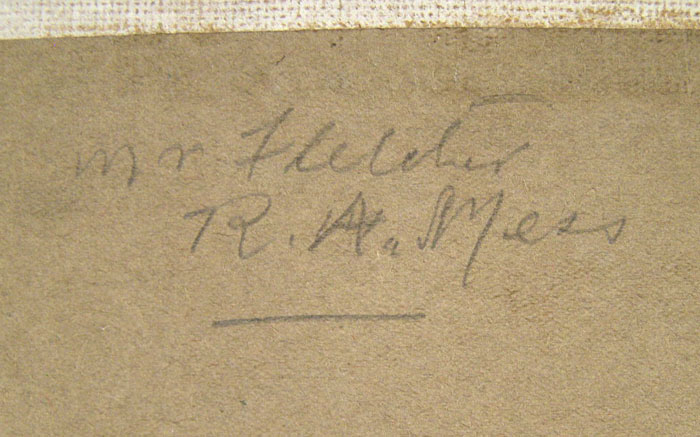 Mr Fletcher
R. A. Mess